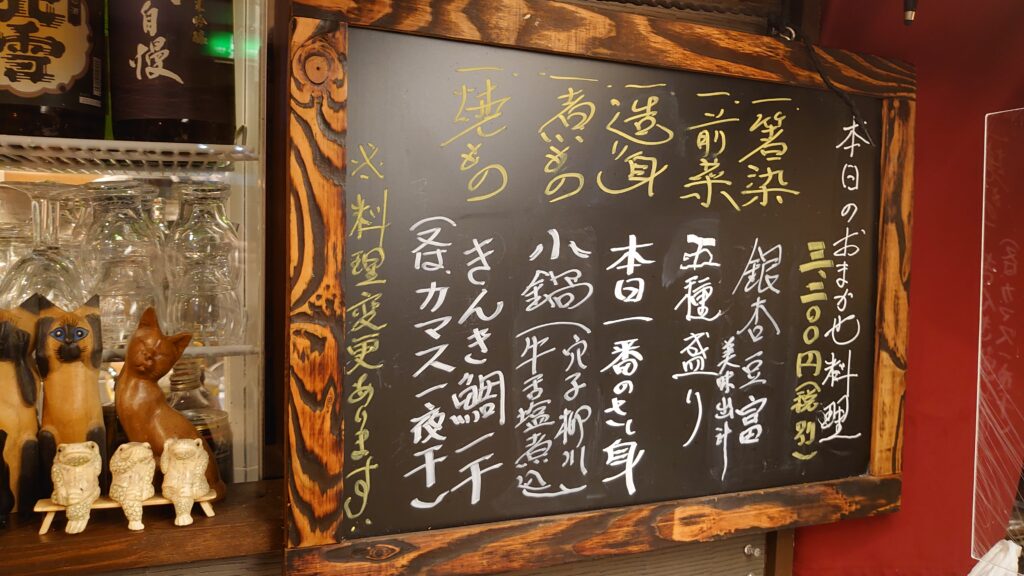 本日のおまかせ料理
三、二００円(税別)
一、箸染 銀杏豆富
美味出汁
一、前菜 五種盛り
一、造り身 本日一番のさし身
一、煮もの 小鍋(穴子柳川
牛すじ塩煮込)
一、焼もの きんき鯛一干
(又は、カマス一夜干し)
※料理変更あります。
自慢
雪